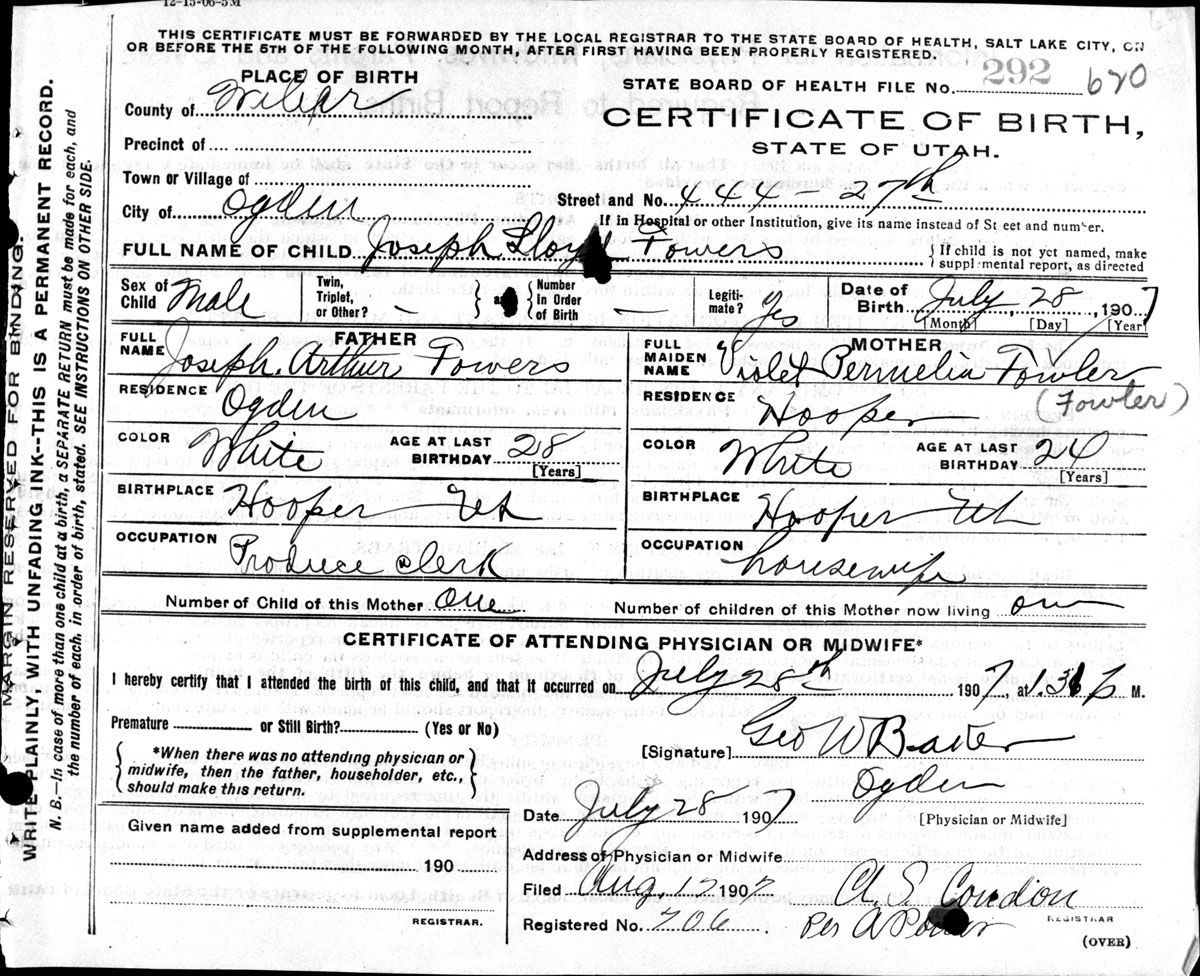 12-15-06-5M
THIS CERTIFICATE MUST BE FORWARDED BY THE LOCAL REGISTRAR TO THE STATE BOARD OF HEALTH, SALT LAKE CITY, ON
OR BEFORE THE 5TH OF THE FOLLOWING MONTH, AFTER FIRST HAVING BEEN PROPERLY REGISTERED.
MARGIN RESERVED FOR BINDING.
WRITE PLAINLY, WITH UNFADING INK--THIS IS A PERMANENT RECORD.
N. B. In case of more than one child at a birth, a SEPARATE RETURN must be made for each, and
the number of each, in order of birth, stated. SEE INSTRUCTIONS ON OTHER SIDE.
PLACE OF BIRTH
STATE BOARD OF HEALTH FILE No. 292 620
County of Weber
CERTIFICATE OF BIRTH,
STATE OF UTAH.
Precinct of
Town or Village of
City of Ogden Street and No. 444 - 27th
If in Hospital or other Institution, give its name instead of St eet and number.
FULL NAME OF CHILD Joseph Lloyd Fowers { If child is not yet named, make
supplemental report, as directed
Sex of Child Male Twin, Triplet, or Other? } and { Number In Order of Birth Legiti-mate? yes Date of Birth July, 28, 1907
[Month] [Day] [Year]
FATHER MOTHER
FULL NAME Joseph Arthur Fowers FULL MAIDEN NAME Violet Permelia Fowler
RESIDENCE Ogden RESIDENCE Hooper (Fowler)
COLOR White AGE AT LAST BIRTHDAY 28 [Years] COLOR White AGE AT LAST BIRTHDAY 24 [Years]
BIRTHPLACE Hooper Ut BIRTHPLACE Hooper Ut
OCCUPATION Produce Clerk OCCUPATION housewife
Number of Child of this Mother One Number of children of this Mother now living one
CERTIFICATE OF ATTENDING PHYSICIAN OR MIDWIFE*
I hereby certify that I attended the birth of this child, and that it occurred on July 28th 1907, at P M.
Premature or Still Birth? (Yes or No)
[Signature] Geo W Baker
{ *When there was no attending physician or
midwife, then the father, householder, etc.,
should make this return. }
Ogden
Date July 28 1907 [Physician or Midwife]
Given name added from supplemental report
Address of Physician or Midwife
190
Filed Aug, 12 1907 A. S. Condon
REGISTRAR. REGISTRAR
Registered No. 706. Per A
(OVER)